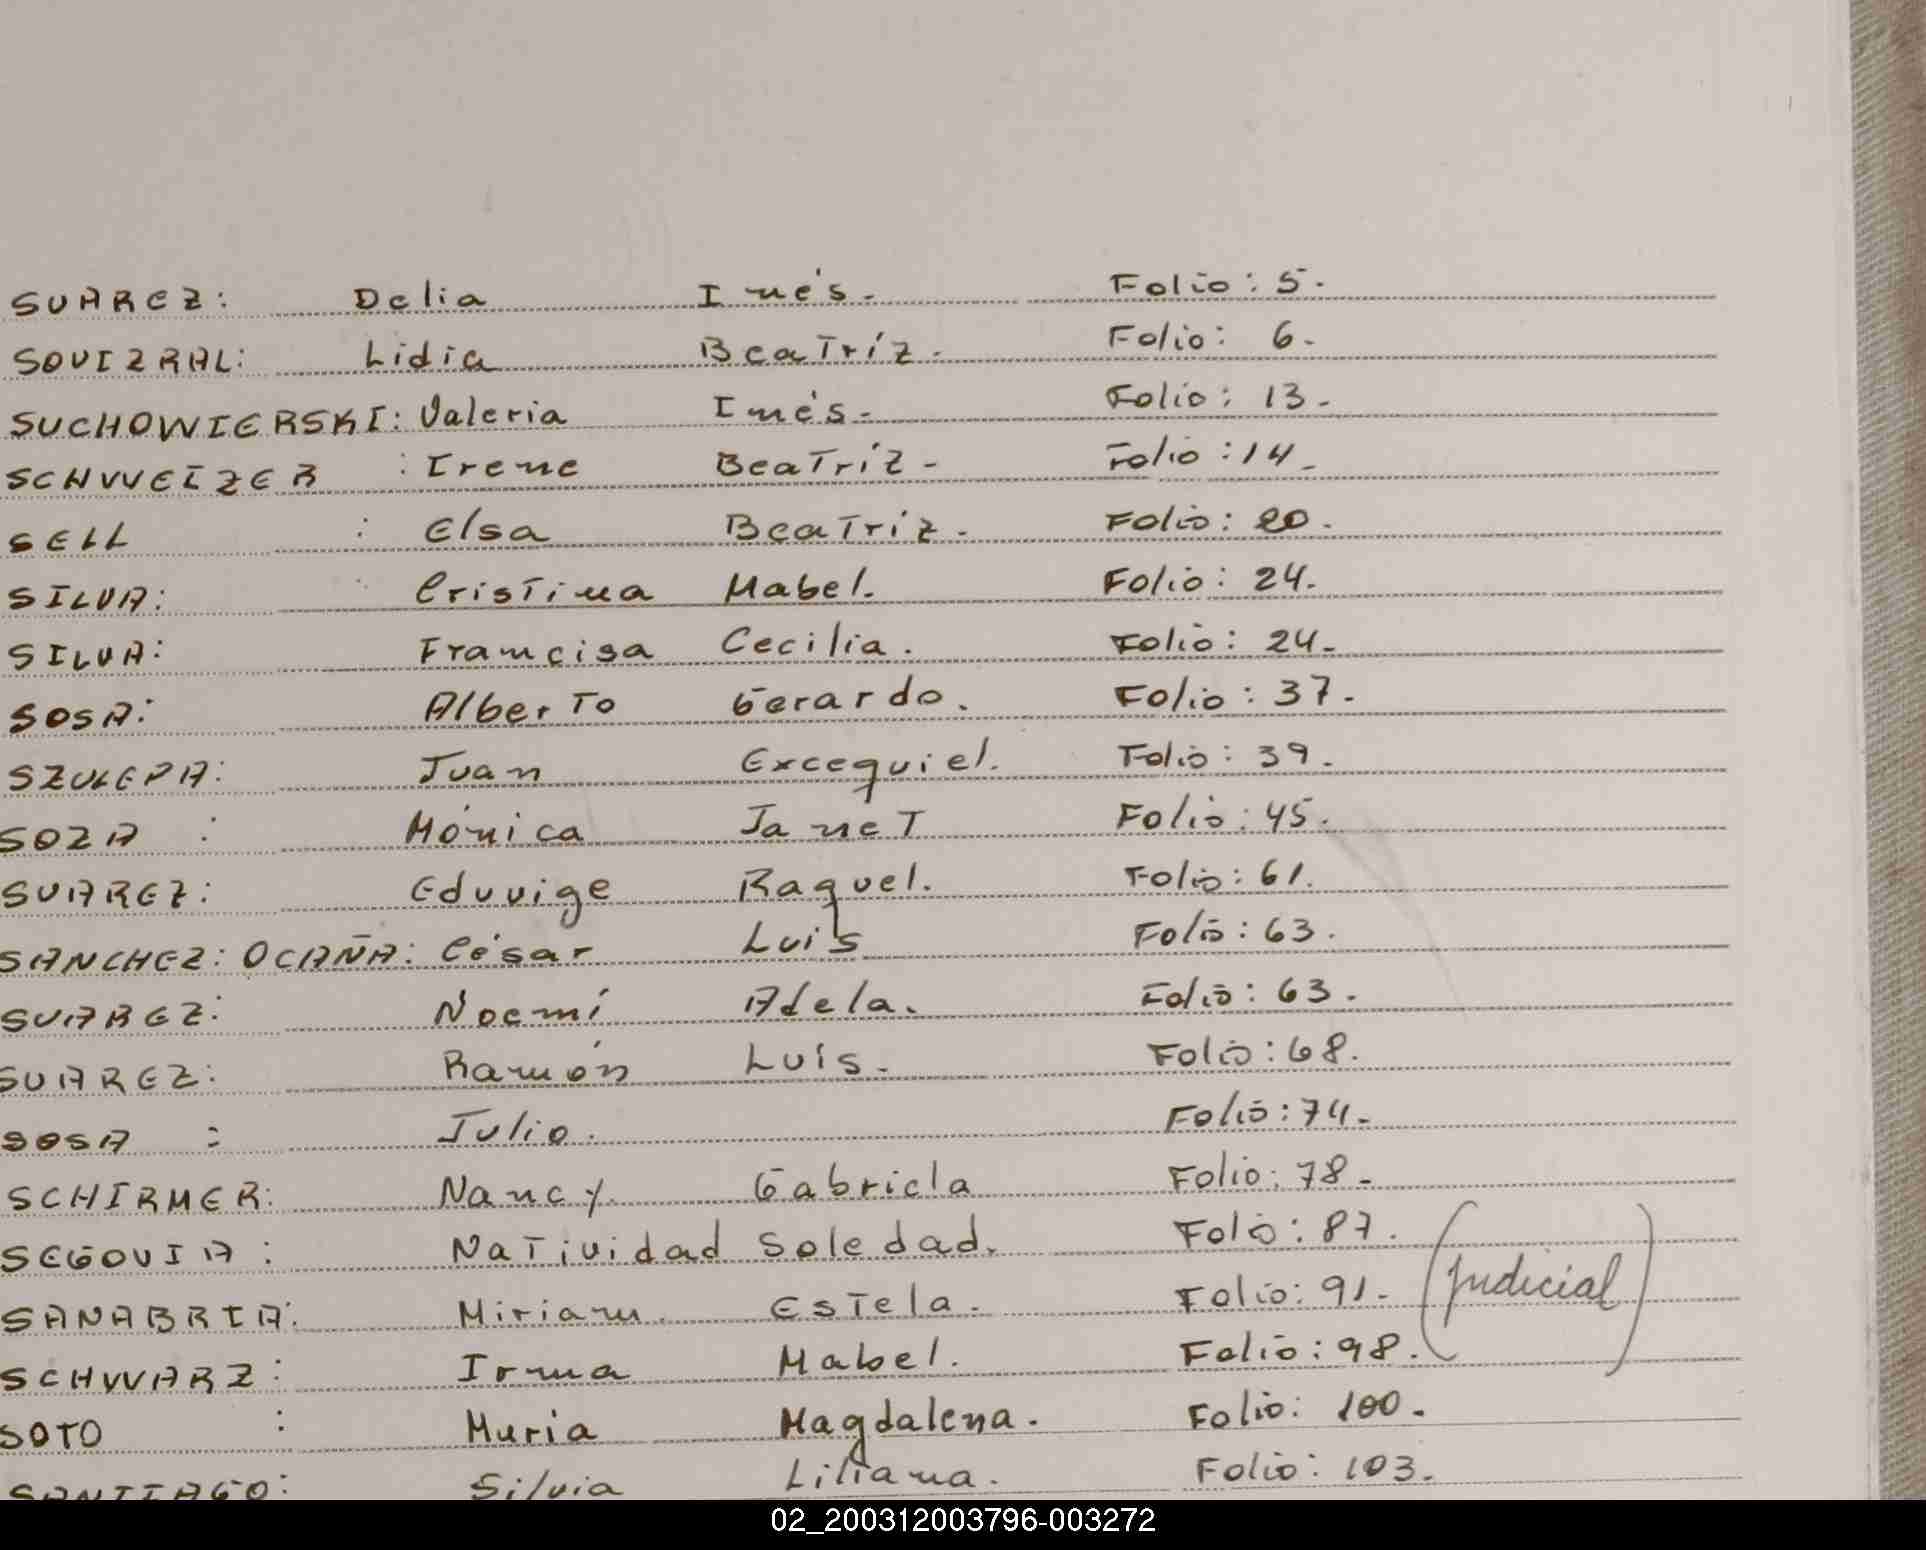 SUAREZ: Delia Inés. Folio: 5.
SOVIZRAL: Lidia Beatríz. Folio: 6.
SUCHOWIERSKI: Valeria Inés. Folio: 13.
SCHWEIZER : Irene Beatríz. Folio: 14.
SELL : Elsa Beatríz. Folio: 20.
SILVA: Cristina Mabel. Folio: 24.
SILVA: Francisa Cecilia. Folio: 24.
SOSA: Alberto Gerardo. Folio: 37.
SZULEPA: Juan Excequiel. Folio: 39.
SOZA : Mónica Janet Folio: 45.
SUAREZ: Eduvige Raquel. Folio: 61.
SANCHEZ: OCAÑA: César Luis Folio: 63.
SUAREZ: Noemí Adela. Folio: 63.
SUAREZ: Ramón Luís. Folio: 68.
SOSA : Julio. Folio: 74.
SCHIRMER: Nancy. Gabriela Folio: 78.
SEGOVIA : Natividad Soledad. Folio: 87.
SANABRIA: Miriam. Estela. Folio: 91. (judicial)
SCHWARZ: Irma Mabel. Folio: 98.
SOTO : Muria Magdalena. Folio: 100.
SANTIAGO: Silvia Liliana. Folio: 103.
02_200312003796-003272